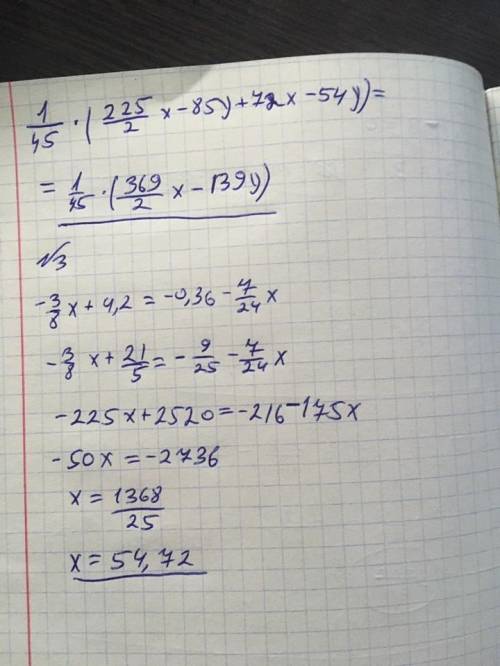 1/45 · (225/2 x - 85y + 72x - 54y) =
= 1/45 · (369/2 x - 139y)
√3
-3/8 x + 4,2 = -0,36 - 7/24 x
-3/8 x + 21/5 = -9/25 - 7/24 x
-225x + 2520 = -216 - 175x
-50x = -2736
x = 1368/25
x = 54,72